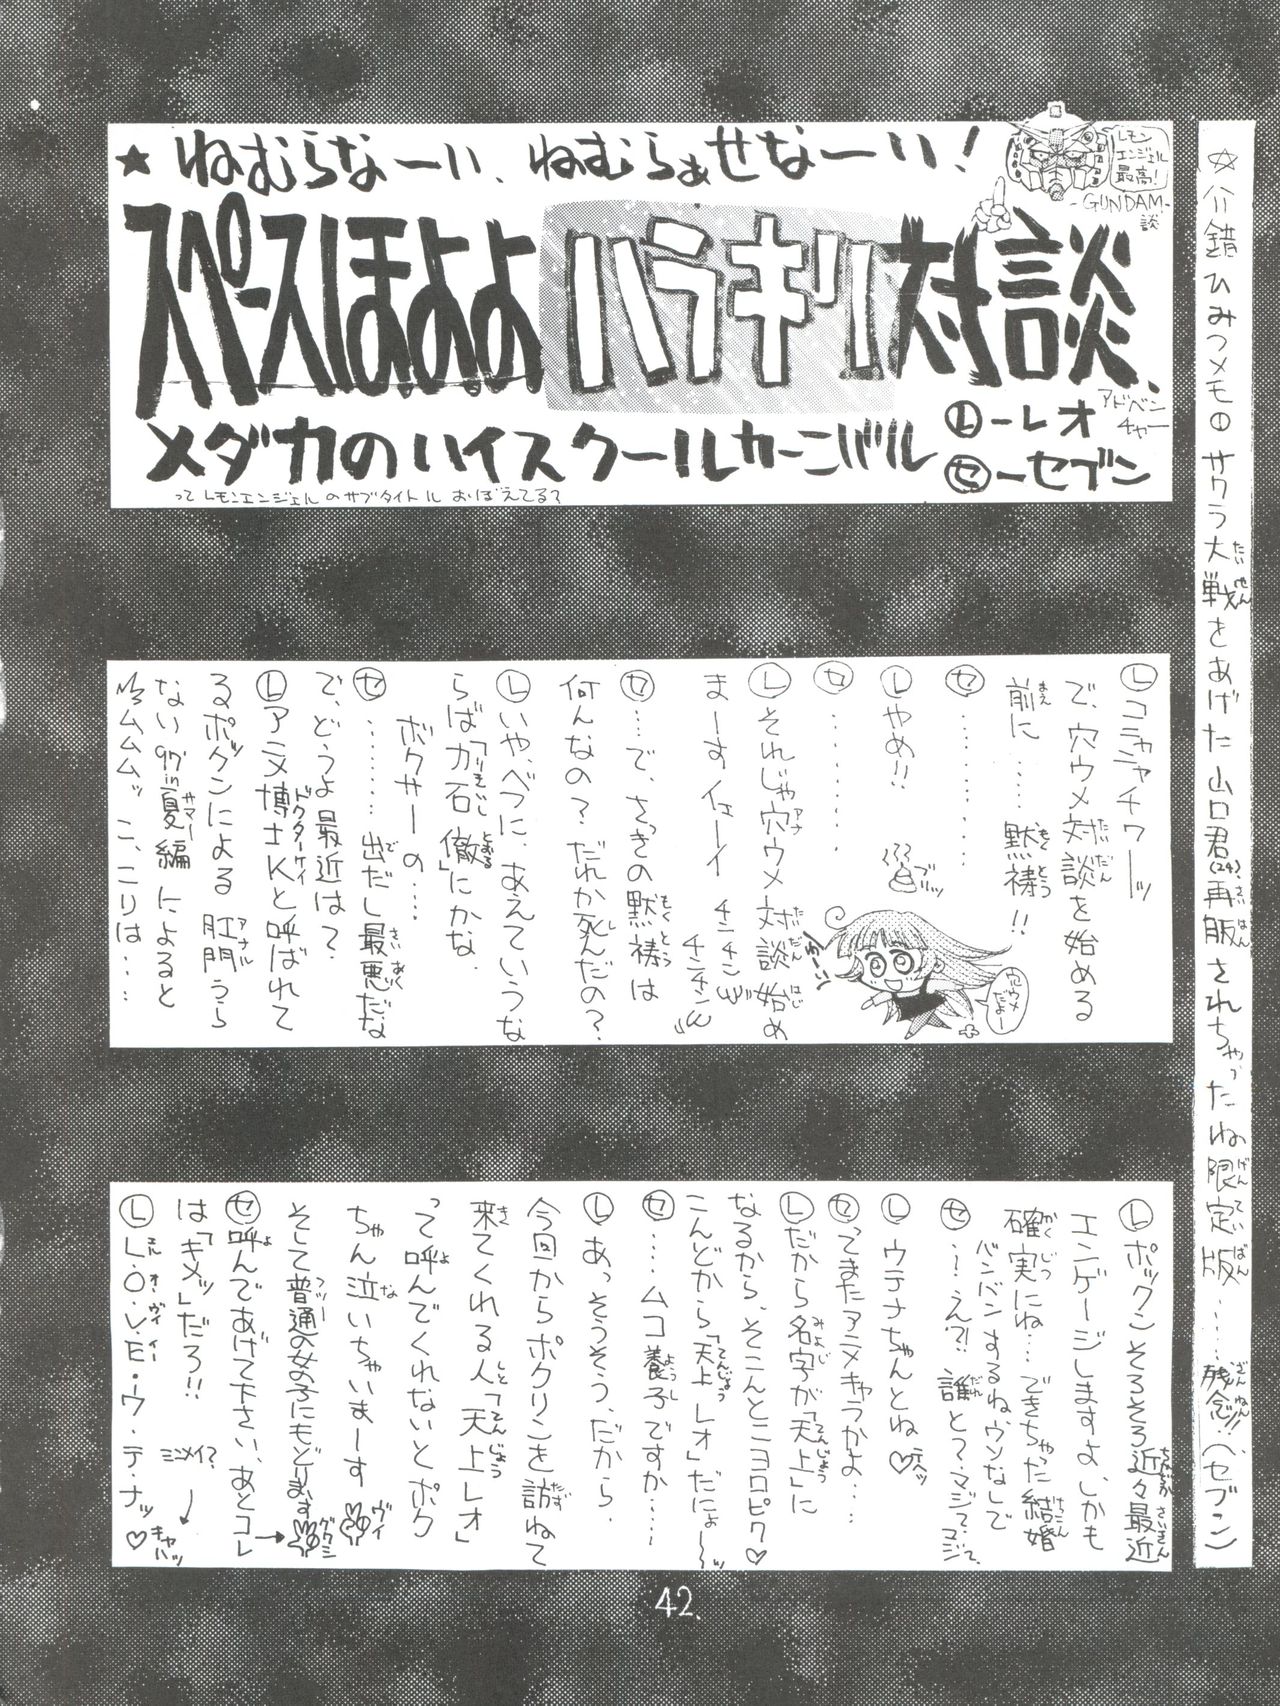 ☆介錯ひみつメモ① サクラ大戦をあげた山口君(24)再販されちゃったね限定版……残念!!(、セブン)
★ねむらなーい、ねむらぁせなーい!
レモン
エンジェル
最高!
-GUNDAM-
談
スペースほよよハラキリ対談、
アドベン
チャー
メダカのハイスクールカーニバル
Ⓛーレオ
セーセブン
ってレモンエンジェルのサブタイトルおぼえてる?
Ⓛコニャニャチワーッ
で、穴ウメ対談を始める
前に……黙祷!!
セ…………
Ⓛやめ!!
ブッッ
セ…………
Ⓛそれじゃ穴ウメ対談始め
まーすイェーイ チンチン チンチン
穴ウメ
だよー
セ…で、さっきの黙祷は
何んなの?だれか死んだの?
Ⓛいや、べつに、あえていうな
らば「力石 徹」にかな、
ボクサーの…
セ……出だし最悪だな
で、どうよ最近は?
Ⓛアニメ博士Kと呼ばれて
るポックンによる肛門うら
ない97in夏編によると
ムムムムッこ、こりは…
Ⓛポックンそろそろ近々最近
エンゲージしますよ、しかも
確実にね…できちゃった結婚
バンバンするね、ウソなしで
セ…え?!誰と?マジで?マジで、
Ⓛウテナちゃんとね♡
セってまたアニメキャラかよ…
Ⓛだから名字が「天上」に
なるから、そこんとこヨロピク♡
こんどから「天上レオ」だにょ〜ッ
セ……ムコ養子ですか…
Ⓛあっそうそう、だから
今回からポクリンを訪ねて
来てくれる人「天上レオ」
って呼んでくれないとポク
ちゃん泣いちゃいまーす ヴイ
そして普通の女の子にもどります グワシ
セ呼んであげて下さい、あとコレ→
は「キメッ」だろ!!
ミンメイ?
キャハッ
ⓁL・O・V・E・ウ・テ・ナッ♡
42.